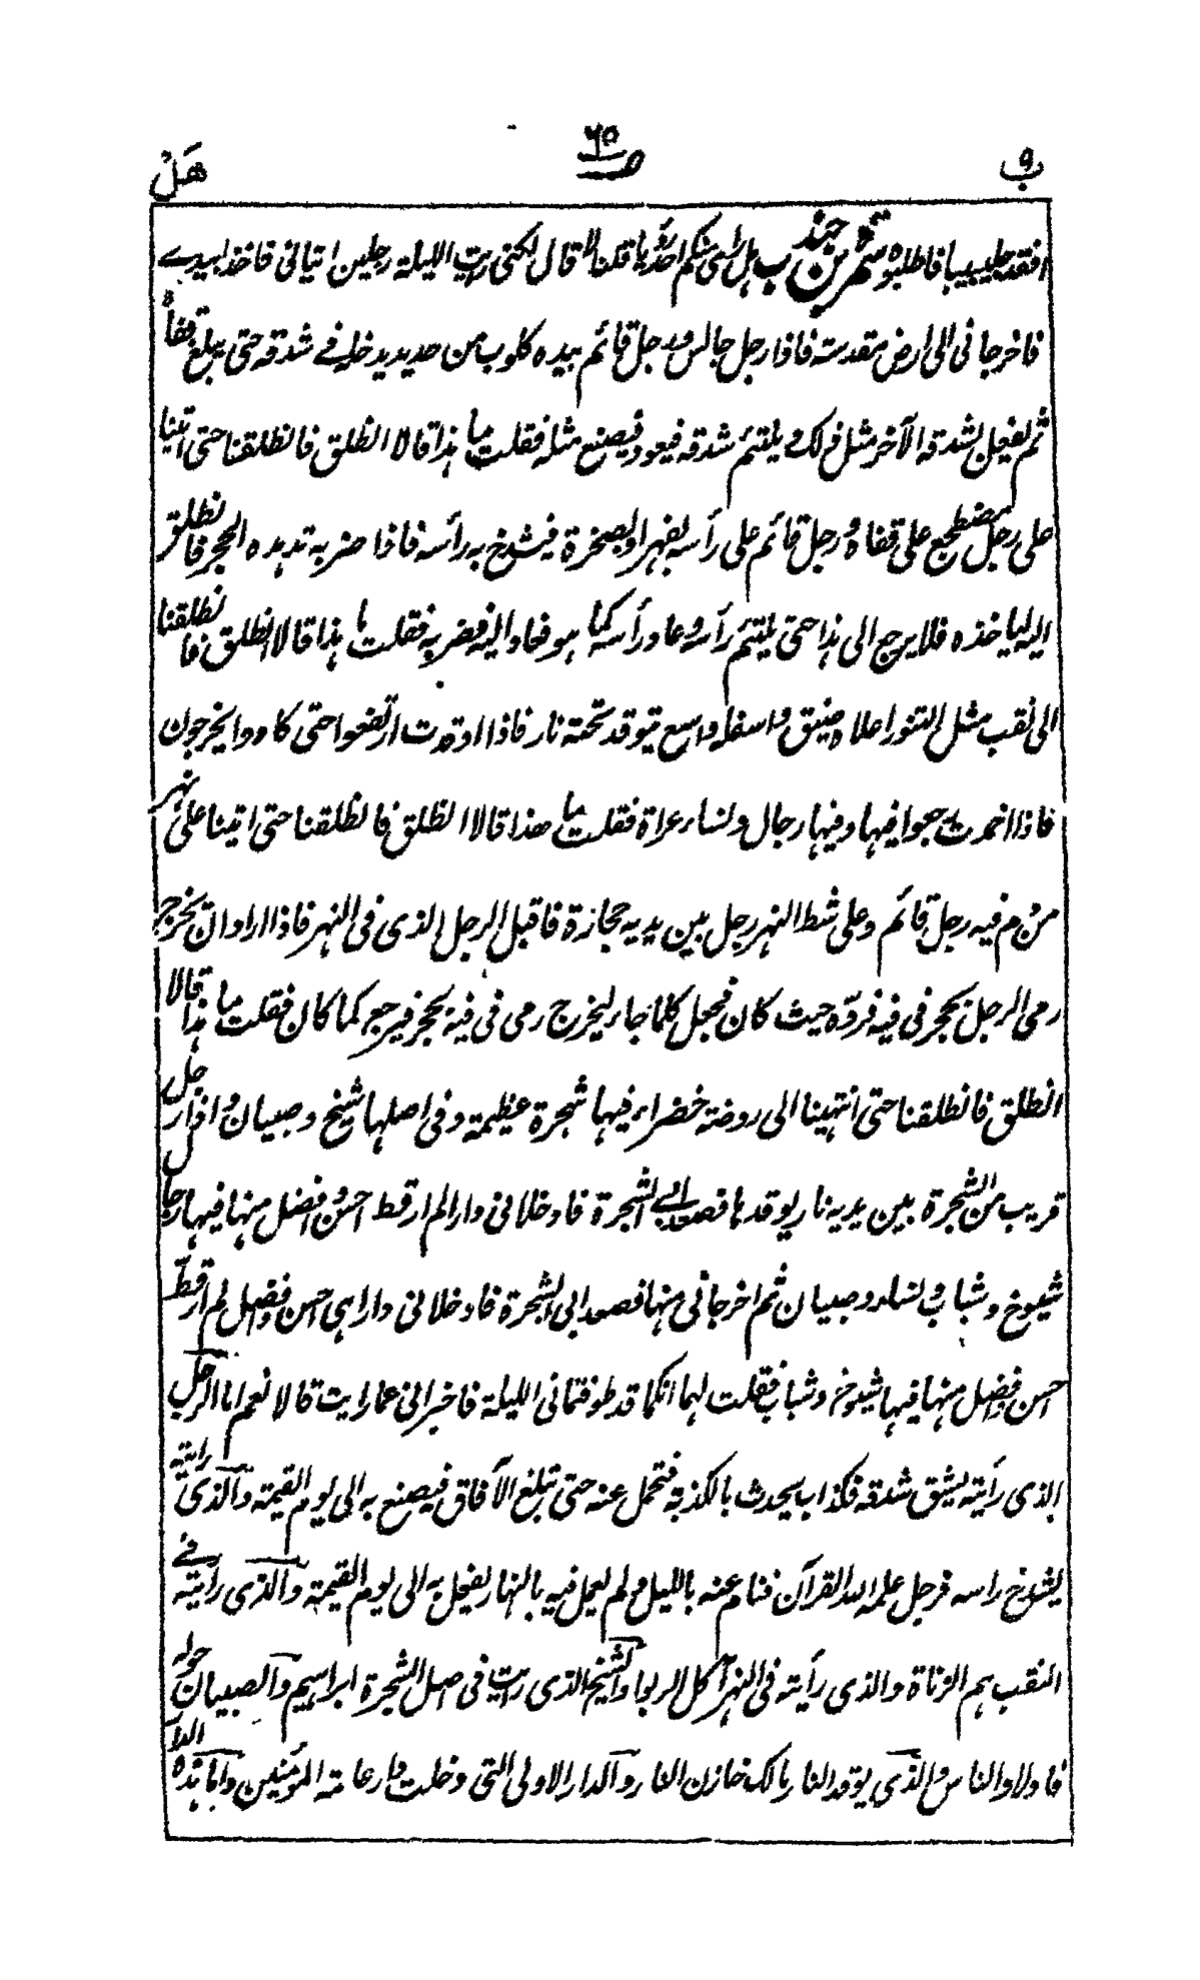 ب ۹
ص ۶۵
هَلْ
افقد جليبيبا فاطلبوه سمرة بن جندب هل رأى منكم احد رؤيا قلنا لا قال لكنى رايت الليلة رجلين اتيانى فاخذا بيدے
فاخرجانى الى ارض مقدسة فاذا رجل جالس ورجل قائم بيده كلوب من حديد يدخله فے شدقه حتى يبلغ قفاه
ثم يفعل بشدقه الآخر مثل ذلك ويلتئم شدقه فيعود فيصنع مثله فقلت ما هذا قالا انطلق فانطلقنا حتى اتينا
على رجل مضطجع على قفاه ورجل قائم على رأسه بفهر او بصخرة فيشدخ به رأسه فاذا ضربه تدهده الحجر فانطلق
اليه لياخذه فلا يرجع الى هذا حتى يلتئم رأسه وعاد رأسه كما هو فعاد اليه فضربه فقلت ما هذا قالا انطلق فانطلقنا
الى نقب مثل التنور اعلاه ضيق واسفله واسع تتوقد تحته نار فاذا اوقدت ارتفعوا حتى كادوا يخرجون
فاذا اخمدت رجعوا فيها وفيها رجال ونساء عراة فقلت ما هذا قالا انطلق فانطلقنا حتى اتينا على نهر
من دم فيه رجل قائم وعلى شط النهر رجل بين يديه حجارة فاقبل الرجل الذى فى النهر فاذا اراد ان يخرج
رمى الرجل بحجر فى فيه فردّه حيث كان فجعل كلما جاء ليخرج رمى فى فيه بحجر فيرجع كما كان فقلت ما هذا قالا
انطلق فانطلقنا حتى انتهينا الى روضة خضراء فيها شجرة عظيمة وفى اصلها شيخ وصبيان واذا رجل
قريب من الشجرة بين يديه نار يوقدها فصعدا بى الشجرة فادخلانى دارا لم ار قط احسن وافضل منها فيها رجال
شيوخ وشباب ونساء وصبيان ثم اخرجانى منها فصعدا بى الشجرة فادخلانى دارا هى احسن وافضل لم ار قطّ
احسن وافضل منها فيها شيوخ وشباب فقلت لهما انكما قد طوفتمانى الليلة فاخبرانى عما رايت قالا نعم اما الرجل
الذى رأيته يشق شدقه فكذاب يحدث بالكذبة فتحمل عنه حتى تبلغ الآفاق فيصنع به الى يوم القيمة والذى رايته
يشدخ راسه فرجل علمه الله القرآن فنام عنه بالليل ولم يعمل فيه بالنهار يفعل به الى يوم القيمة والذى رأيته فے
النقب هم الزناة والذى رأيته فى النهر آكل الربوا والشيخ الذى رايت فى اصل الشجرة ابراهيم والصبيان حوله
فاولاد الناس والذى يوقد النار مالك خازن النار والدار الاولى التى دخلت دار عامة المؤمنين واما هذه الدار